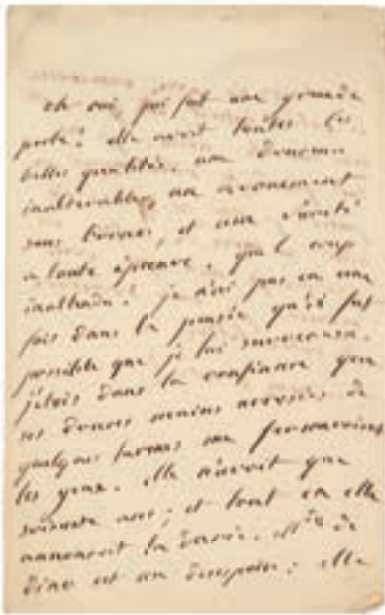 oh oui j'ai fait une grande
perte! elle avoit toutes les
belles qualités, une douceur
inaltérable, un dévouement
sans bornes, et une sûreté
a toute épreuve. quel coup
inattendu! je n'ai pas eu une
fois dans la pensée qu'il fut
possible que je lui survecusse.
j'étois dans la confiance que
ses douces mains arrosées de
quelques larmes me fermeroient
les yeux. elle n'avoit que
soixante ans; et tout en elle
annonçoit la durée. Mde de
dino est au desespoir: elle